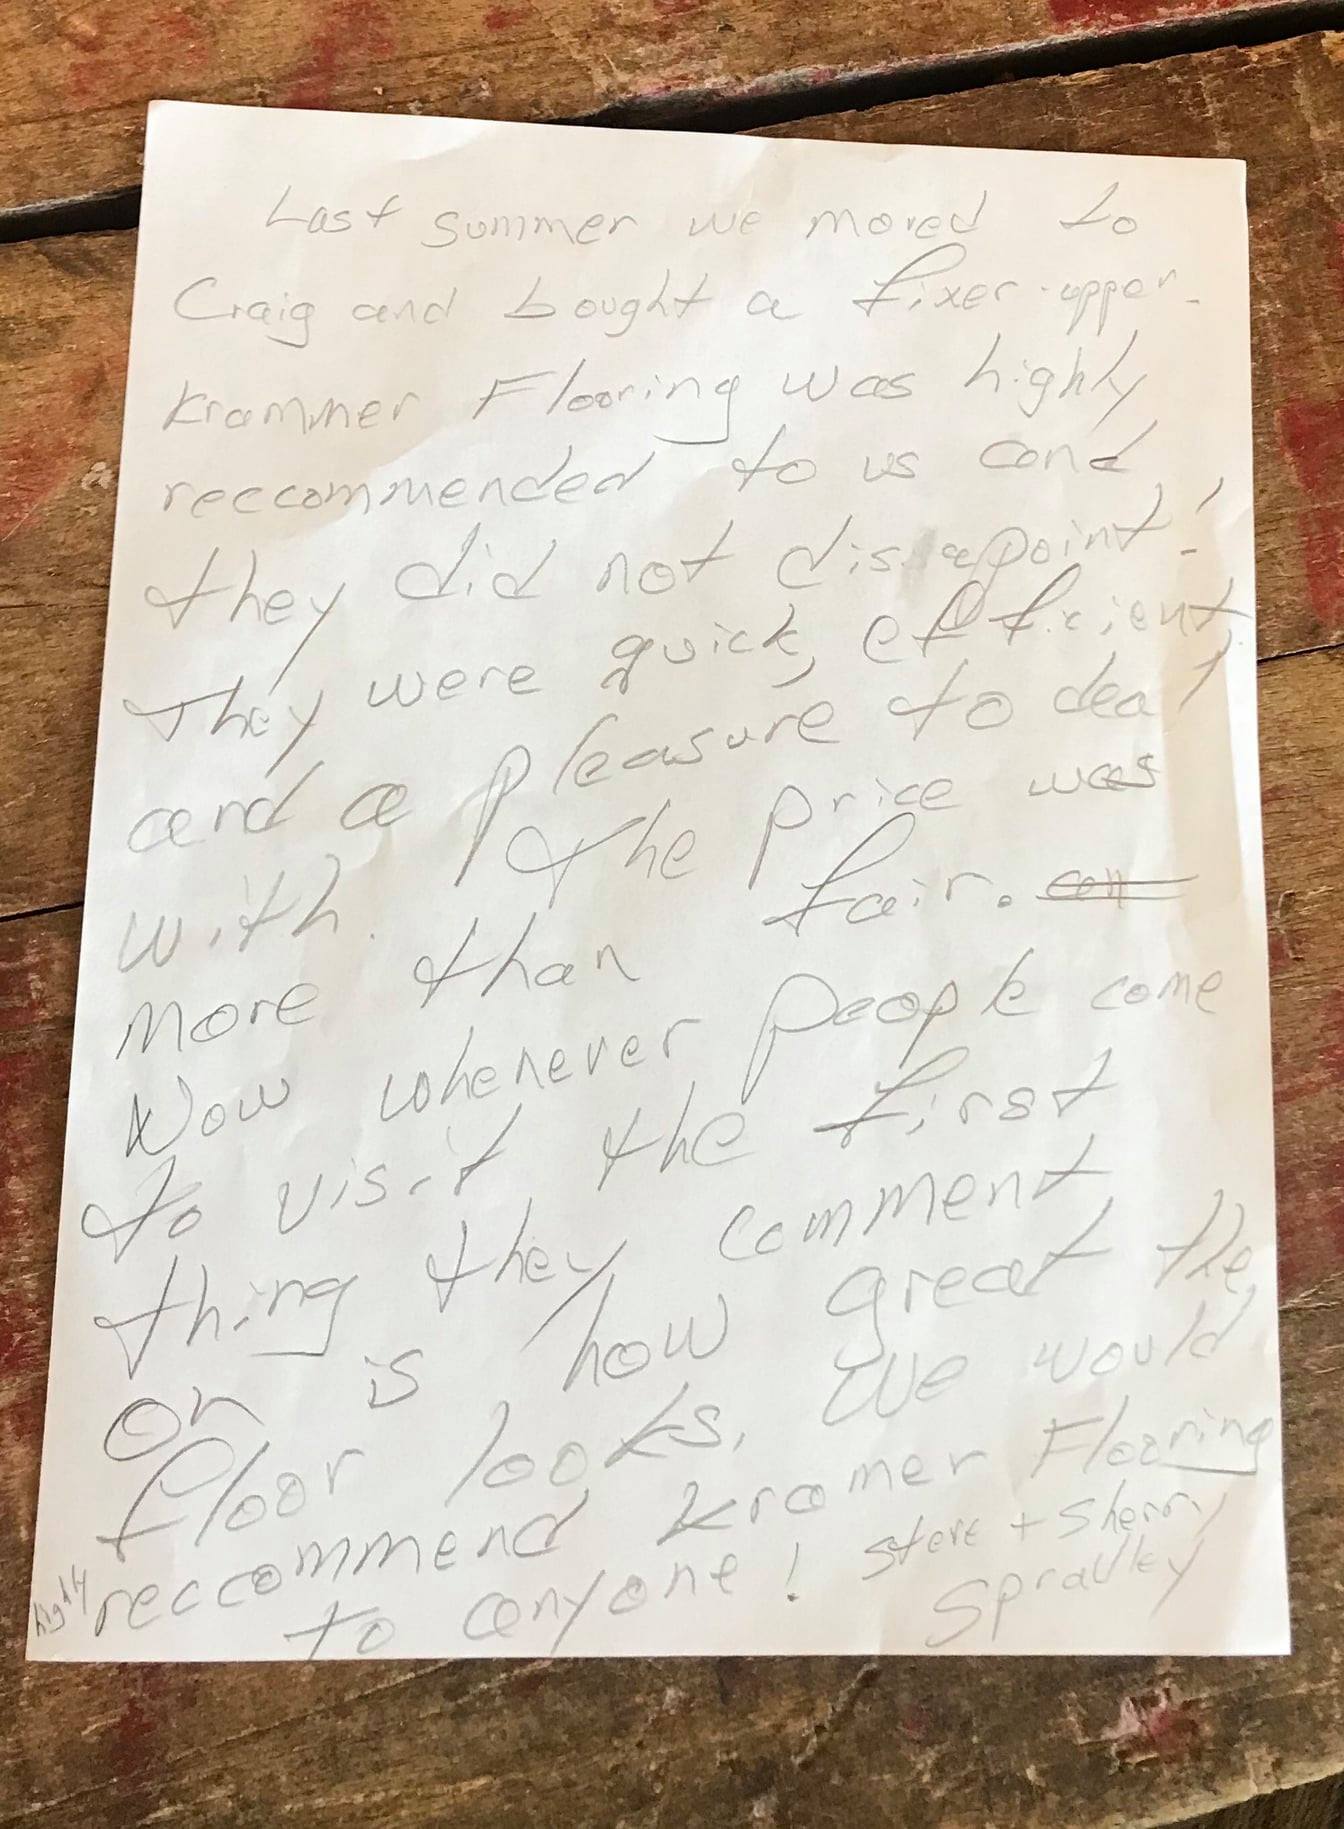 Last summer we moved to
Craig and bought a fixer-upper.
Krammer Flooring was highly
reccommended to us and
they did not disapoint!
They were quick, efficient,
and a pleasure to deal
with. The price was
more than fair.
Now whenever people come
to visit, the first
thing they comment
on is how great the
floor looks. We would
highly reccommend Kramer Flooring
to anyone! Steve + Sherry
Spradley